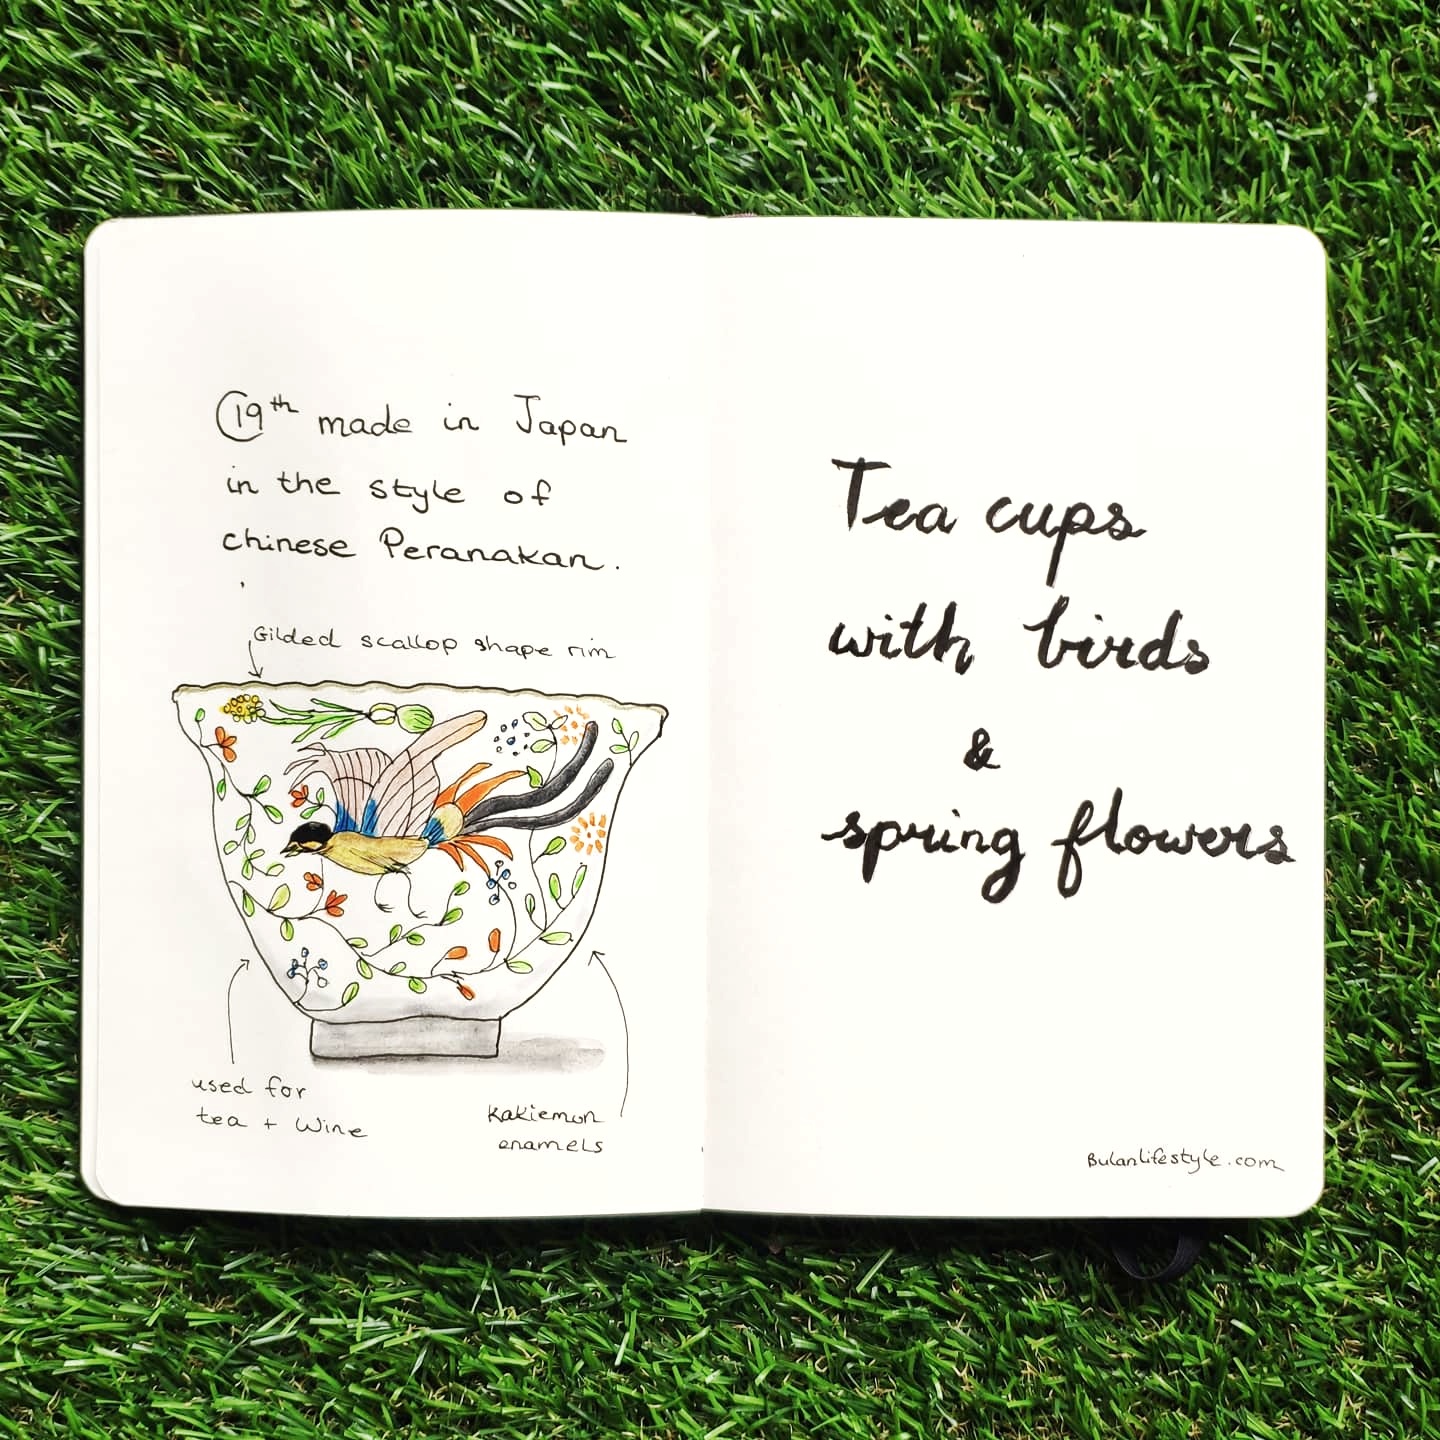 C19th made in Japan
in the style of
chinese Peranakan.
Gilded scallop shape rim
used for
tea + Wine
Kakiemon
enamels
Tea cups
with birds
&
spring flowers
Bulanlifestyle.com